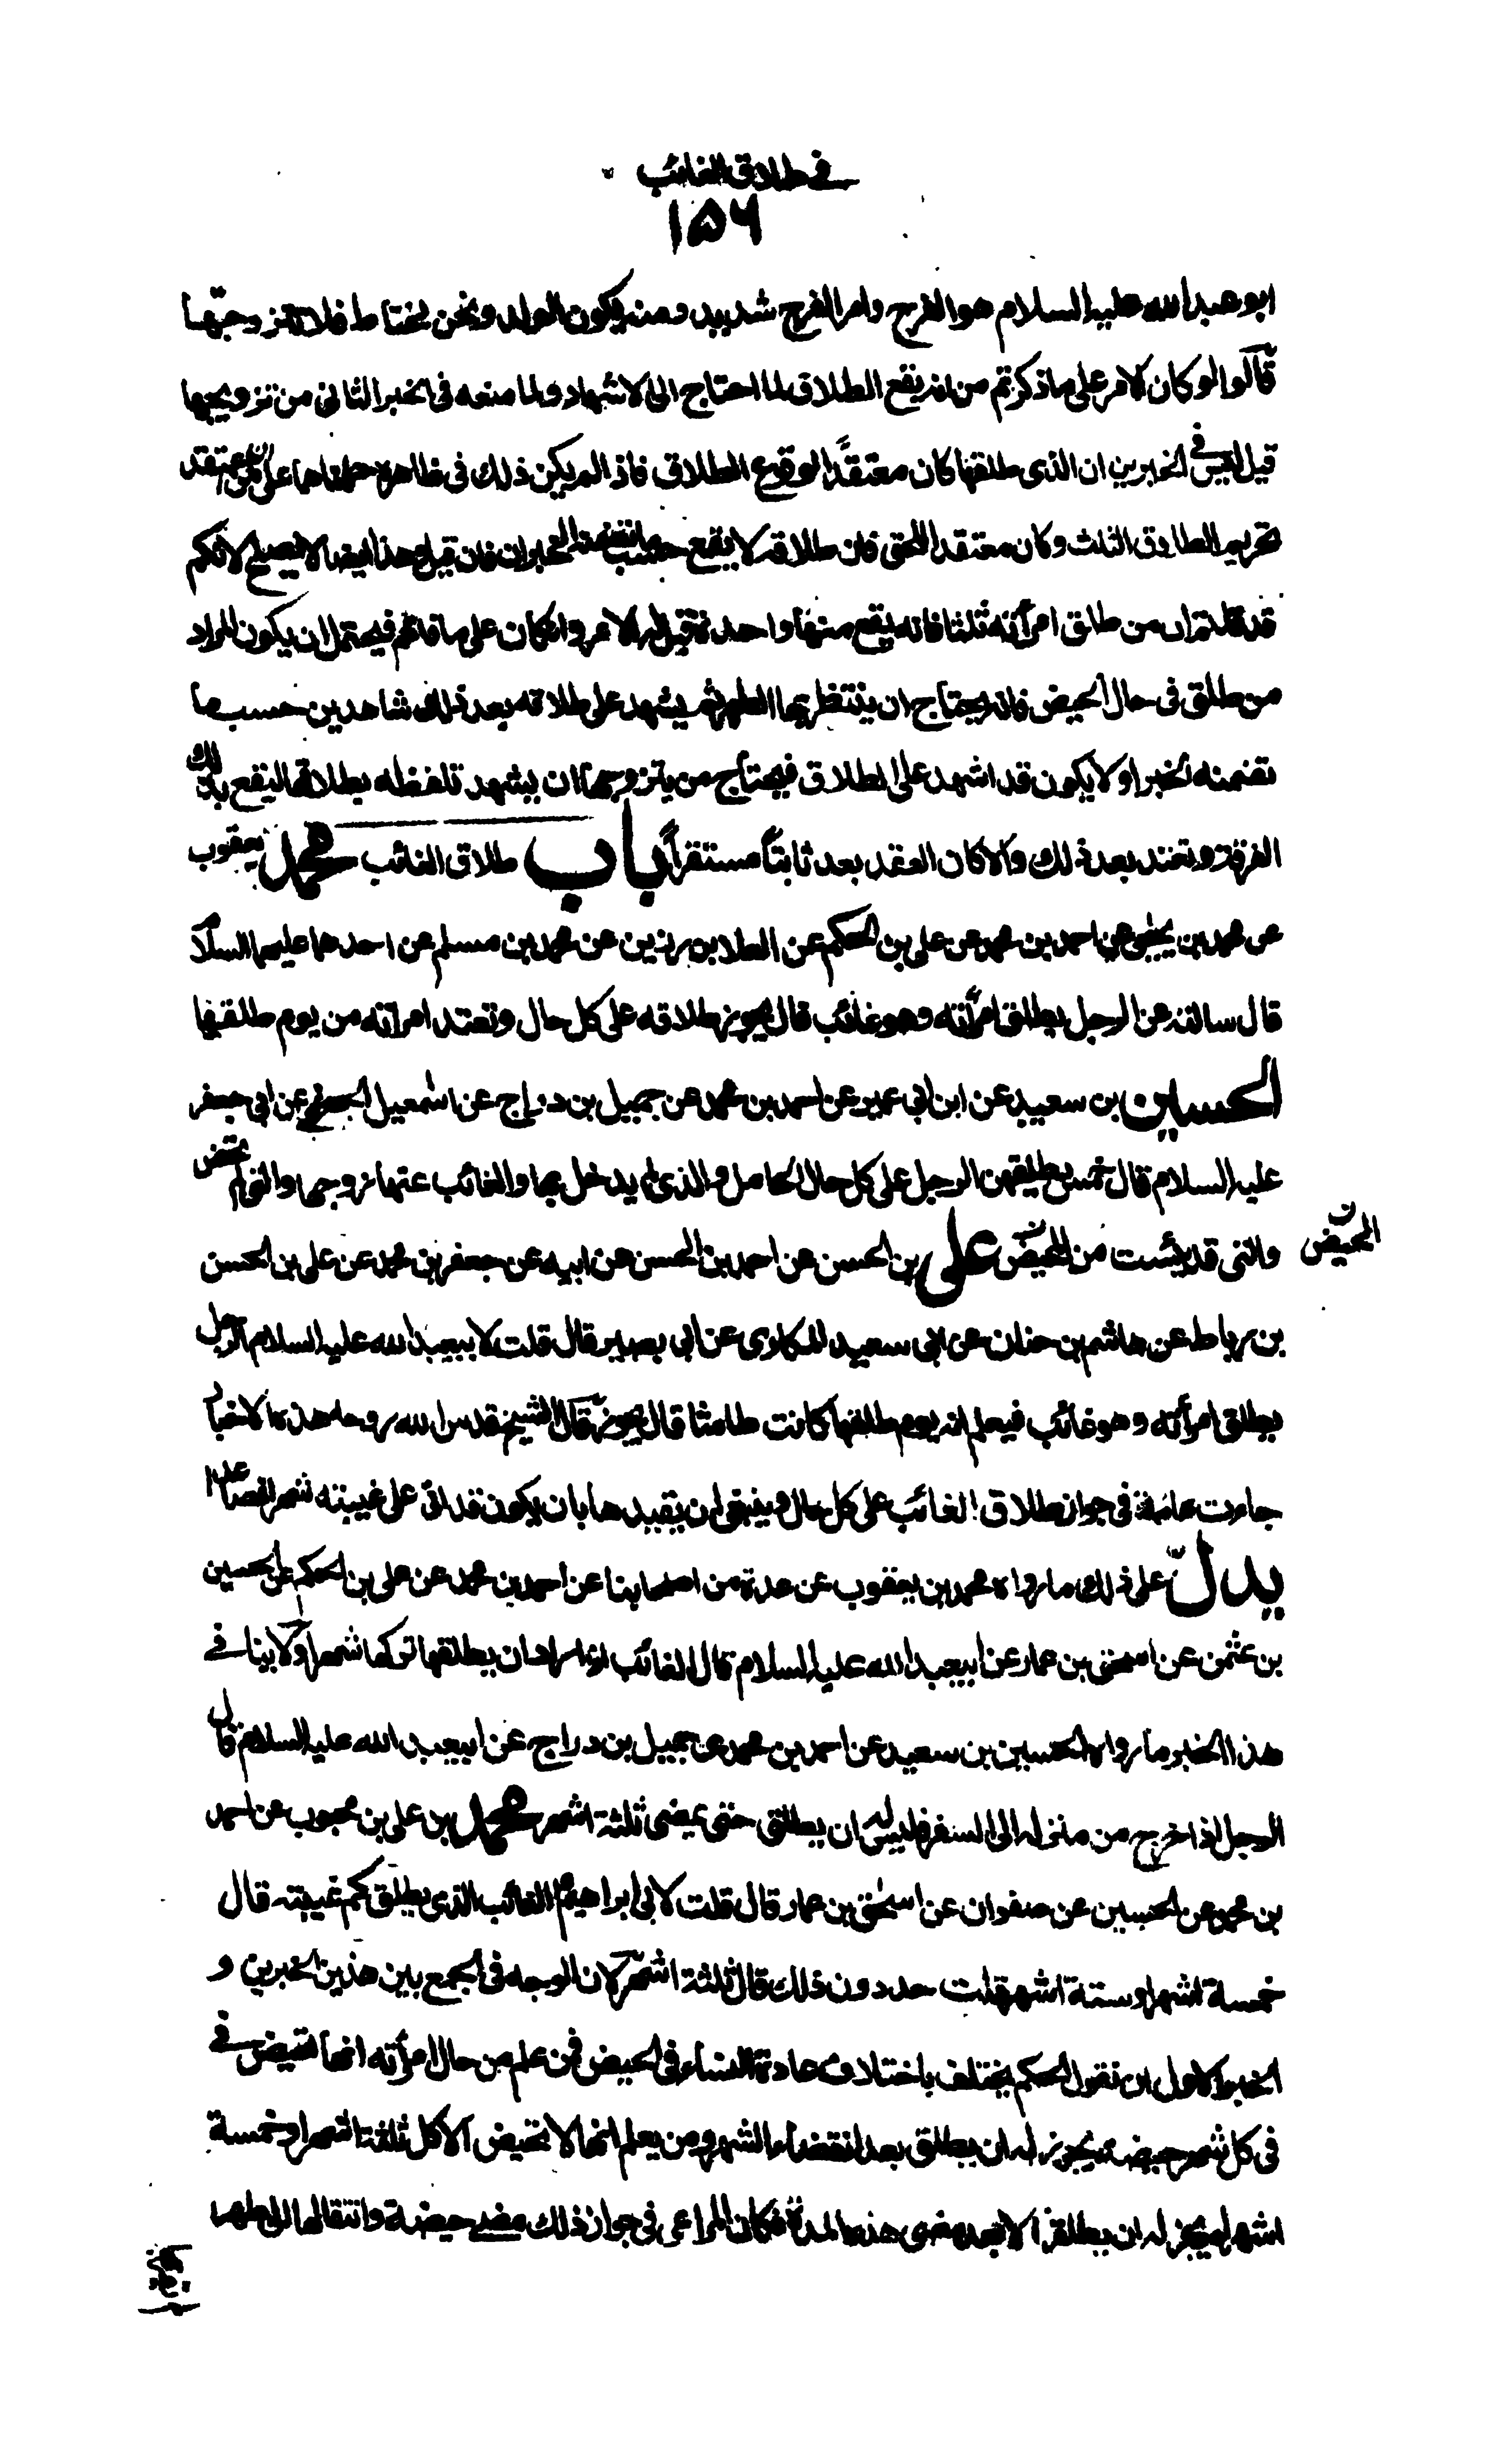 في طلاق الغائب
١٥٦
ابو عبد الله عليه السلام هو الفرج وامر الفرج شديد ومنه يكون الولد ونحن نحتاط فلا تتزوجها
قالوا لو كان الامر على ما ذكرتم من انه يقع الطلاق لما احتاج الى الاشهاد ولما منعه في الخبر الثاني من تزويجها
قيل ليس في الخبرين ان الذى طلقها كان معتقدا لوقوع الطلاق فاذا لم يكن ذلك في ظاهره حملناهما على من يعتقد
تحريم الطلاق الثلث وكان معتقد الحق فان طلاقه لا يقع حسب ما تضمنه الخبران فان قيل وهذا ايضا لا يصح لانكم
قد قلتم ان من طلق امرأته ثلثا فانه يقع منها واحدة قيل له الامر وان كان على ما قلتم فيحتمل ان يكون المراد
من طلق في حال الحيض فانه يحتاج ان ينتظر بها الطهر ثم يشهد على طلاقه بعد ذلك شاهدين حسب ما
تضمنه الخبر او لا يكون قد اشهد على الطلاق فيحتاج من يتزوجها ان يشهد تلفظه بطلاقها ليقع بذلك
الفرقة وتعتد بعد ذلك والا كان العقد بعد ثابتاً مستقراً باب طلاق الغائب محمد يعقوب
عن محمد بن يحيى عن احمد بن محمد عن على بن الحكم عن العلا بن رزين عن محمد بن مسلم عن احدهما عليهما السلا
قال سالته عن الرجل يطلق امرأته وهو غائب قال يجوز طلاقه على كل حال وتعتد امراته من يوم طلقها
الحسين بن سعيد عن ابن ابي عمير عن احمد بن محمد عن جميل بن دراج عن اسمعيل الجعفي عن ابي جعفر
عليه السلام قال خمس يطلقهن الرجل على كل حال الحامل والذى لم يدخل بها والغائب عنها زوجها والتي لم تحض
والتي قد يئست من المحيض على بن الحسن عن احمد بن الحسن عن ابيه عن جعفر بن محمد عن على بن الحسن
المحيض ن
بن رباط عن هاشم بن حنان عن ابى سعيد المكارى عن ابى بصير قال قلت لابيعبد الله عليه السلام الرجل
يطلق امرأته وهو غائب فيعلم انه يوم طلقها كانت طامثا قال يجوز قال الشيخ قدس الله روحه هذه الاخبار
جاءت عامة في جواز طلاق الغائب على كل حال وينبغي ان يقيدها بان يكون قد اتى على غيبته شهر فصاعدا
يدل على ذلك ما رواه محمد بن يعقوب عن عدة من اصحابنا عن احمد بن محمد عن على بن الحكم عن الحسين
بن عثمن عن اسحق بن عمار عن ابيعبد الله عليه السلام قال الغائب اذا اراد ان يطلقها تركها شهرا ولا ينافى
هذا الخبر ما رواه الحسين بن سعيد عن احمد بن محمد عن جميل بن دراج عن ابيعبد الله عليه السلام قال
الرجل اذا خرج من منزله الى السفر فليس له ان يطلق حتى يمضى ثلثة اشهر محمد بن على بن محبوب عن احمد
بن محمد عن الحسين عن صفوان عن اسحق بن عمار قال قلت لابي ابراهيم الغائب الذى يطلق كم غيبته قال
خمسة اشهر او ستة اشهر قلت حد دون ذلك قال ثلثة اشهر لان الوجه في الجمع بين هذين الخبرين و
الخبر الاول ان نقول الحكم يختلف باختلاف عادة النساء في الحيض فمن علم من حال امرأته انها تحيض في
في كل شهر حيضة يجوز له ان يطلق بعد انقضاء الشهر ومن يعلم انها لا تحيض الا كل ثلثة اشهر او خمسة
اشهر لم يجز له ان يطلقها الا بعد مضى هذه المدة فكان المراعى في جواز ذلك مضى حيضة وانتقالها الى طهر